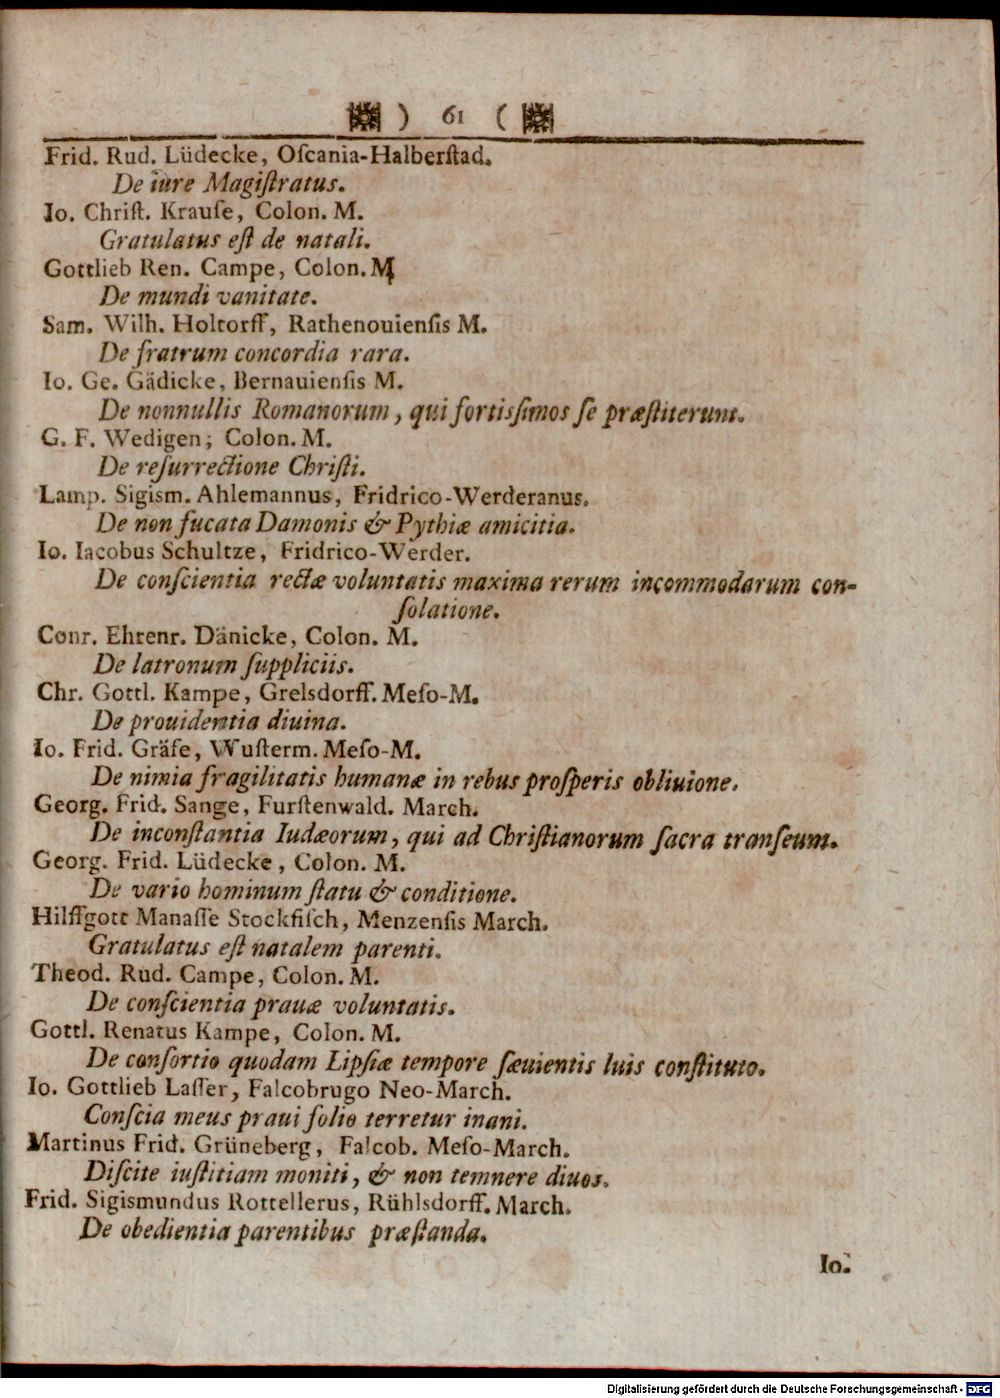 ) 61 (
Frid. Rud. Lüdecke, Oſcania-Halberſtad.
De iure Magiſtratus.
Io. Chriſt. Krauſe, Colon. M.
Gratulatus eſt de natali.
Gottlieb Ren. Campe, Colon. M.
De mundi vanitate.
Sam. Wilh. Holtorff, Rathenouienſis M.
De fratrum concordia rara.
Io. Ge. Gädicke, Bernauienſis M.
De nonnullis Romanorum, qui fortisſimos ſe præſtiterunt.
G. F. Wedigen; Colon. M.
De reſurrectione Chriſti.
Lamp. Sigism. Ahlemannus, Fridrico-Werderanus.
De non fucata Damonis & Pythiæ amicitia.
Io. Iacobus Schultze, Fridrico-Werder.
De conſcientia rectæ voluntatis maxima rerum incommodarum con-
ſolatione.
Conr. Ehrenr. Dänicke, Colon. M.
De latronum ſuppliciis.
Chr. Gottl. Kampe, Grelsdorff. Meſo-M.
De prouidentia diuina.
Io. Frid. Gräfe, Wuſterm. Meſo-M.
De nimia fragilitatis humanæ in rebus proſperis obliuione.
Georg. Frid. Sange, Furſtenwald. March.
De inconſtantia Iudæorum, qui ad Chriſtianorum ſacra tranſeunt.
Georg. Frid. Lüdecke, Colon. M.
De vario hominum ſtatu & conditione.
Hilffgott Manaſſe Stockfiſch, Menzenſis March.
Gratulatus eſt natalem parenti.
Theod. Rud. Campe, Colon. M.
De conſcientia prauæ voluntatis.
Gottl. Renatus Kampe, Colon. M.
De conſortio quodam Lipſiæ tempore ſæuientis luis conſtituto.
Io. Gottlieb Laſſer, Falcobrugo Neo-March.
Conſcia meus praui ſolio terretur inani.
Martinus Frid. Grüneberg, Falcob. Meſo-March.
Diſcite iuſtitiam moniti, & non temnere diuos.
Frid. Sigismundus Rottellerus, Rühlsdorff. March.
De obedientia parentibus præſtanda.
Io.
Digitalisierung gefördert durch die Deutsche Forschungsgemeinschaft - DFG